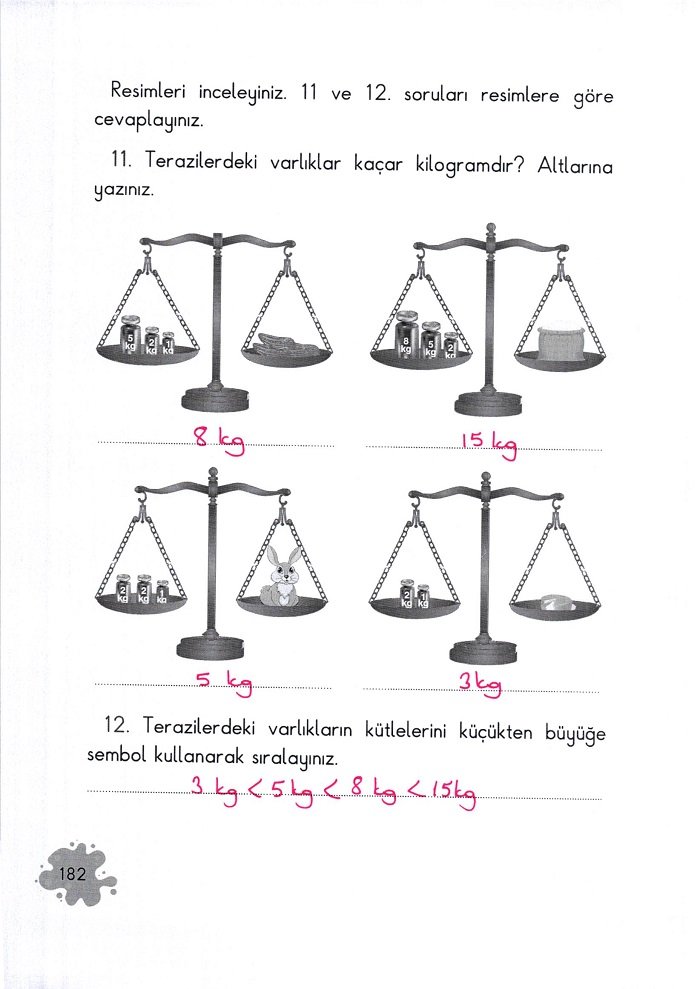 Resimleri inceleyiniz. 11 ve 12. soruları resimlere göre
cevaplayınız.
11. Terazilerdeki varlıklar kaçar kilogramdır? Altlarına
yazınız.
5 kg 2 kg 1 kg
8 kg 5 kg 2 kg
8 kg
15 kg
2 kg 2 kg 1 kg
2 kg 1 kg
5 kg
3 kg
12. Terazilerdeki varlıkların kütlelerini küçükten büyüğe
sembol kullanarak sıralayınız.
3 kg < 5 kg < 8 kg < 15 kg
182